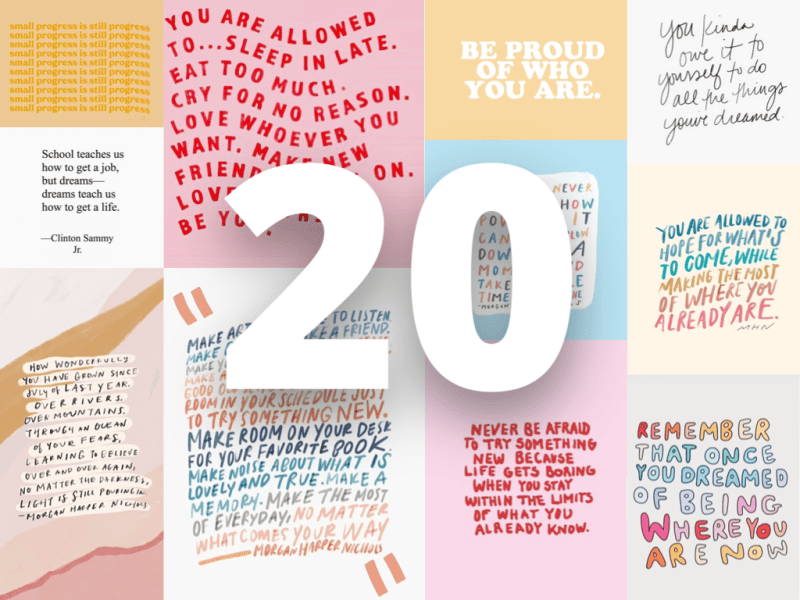 small progress is still progress
small progress is still progress
small progress is still progress
small progress is still progress
small progress is still progress
small progress is still progress
small progress is still progress
small progress is still progress
YOU ARE ALLOWED
TO...SLEEP IN LATE.
EAT TOO MUCH.
CRY FOR NO REASON.
LOVE WHOEVER YOU
WANT. MAKE NEW
ON.
BE
BE PROUD
OF WHO
YOU ARE.
you kinda
owe it to
yourself to do
all the things
youve dreamed.
School teaches us
how to get a job,
but dreams—
dreams teach us
how to get a life.
—Clinton Sammy
Jr.
20
NEVER
HOW
IT
CAN
A
DOW
MOM
TAKE
TIME
YOU ARE ALLOWED TO
HOPE FOR WHAT'S
TO COME, WHILE
MAKING THE MOST
OF WHERE YOU
ALREADY ARE.
MHN
HOW WONDERFULLY
YOU HAVE GROWN SINCE
JULY OF LAST YEAR.
OVER RIVERS,
OVER MOUNTAINS,
THROUGH AN OCEAN
OF YOUR FEARS,
LEARNING TO BELIEVE
OVER AND OVER AGAIN,
NO MATTER THE DARKNESS,
LIGHT IS STILL POURING IN.
—MORGAN HARPER NICHOLS
"
MAKE TO LISTEN.
MAKE A FRIEND.
MAKE
MAKE
GOOD
ROOM IN YOUR SCHEDULE JUST
TO TRY SOMETHING NEW.
MAKE ROOM ON YOUR DESK
FOR YOUR FAVORITE BOOK.
MAKE NOISE ABOUT WHAT IS
LOVELY AND TRUE. MAKE A
MEMORY. MAKE THE MOST
OF EVERYDAY, NO MATTER
WHAT COMES YOUR WAY
— MORGAN HARPER NICHOLS
"
NEVER BE AFRAID
TO TRY SOMETHING
NEW BECAUSE
LIFE GETS BORING
WHEN YOU STAY
WITHIN THE LIMITS
OF WHAT YOU
ALREADY KNOW.
REMEMBER
THAT ONCE
YOU DREAMED
OF BEING
WHERE YOU
ARE NOW